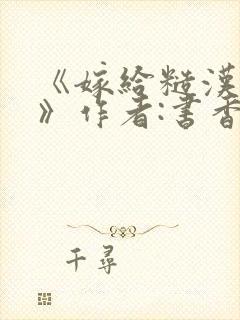 《嫁给糙汉
》作者:书香
千寻